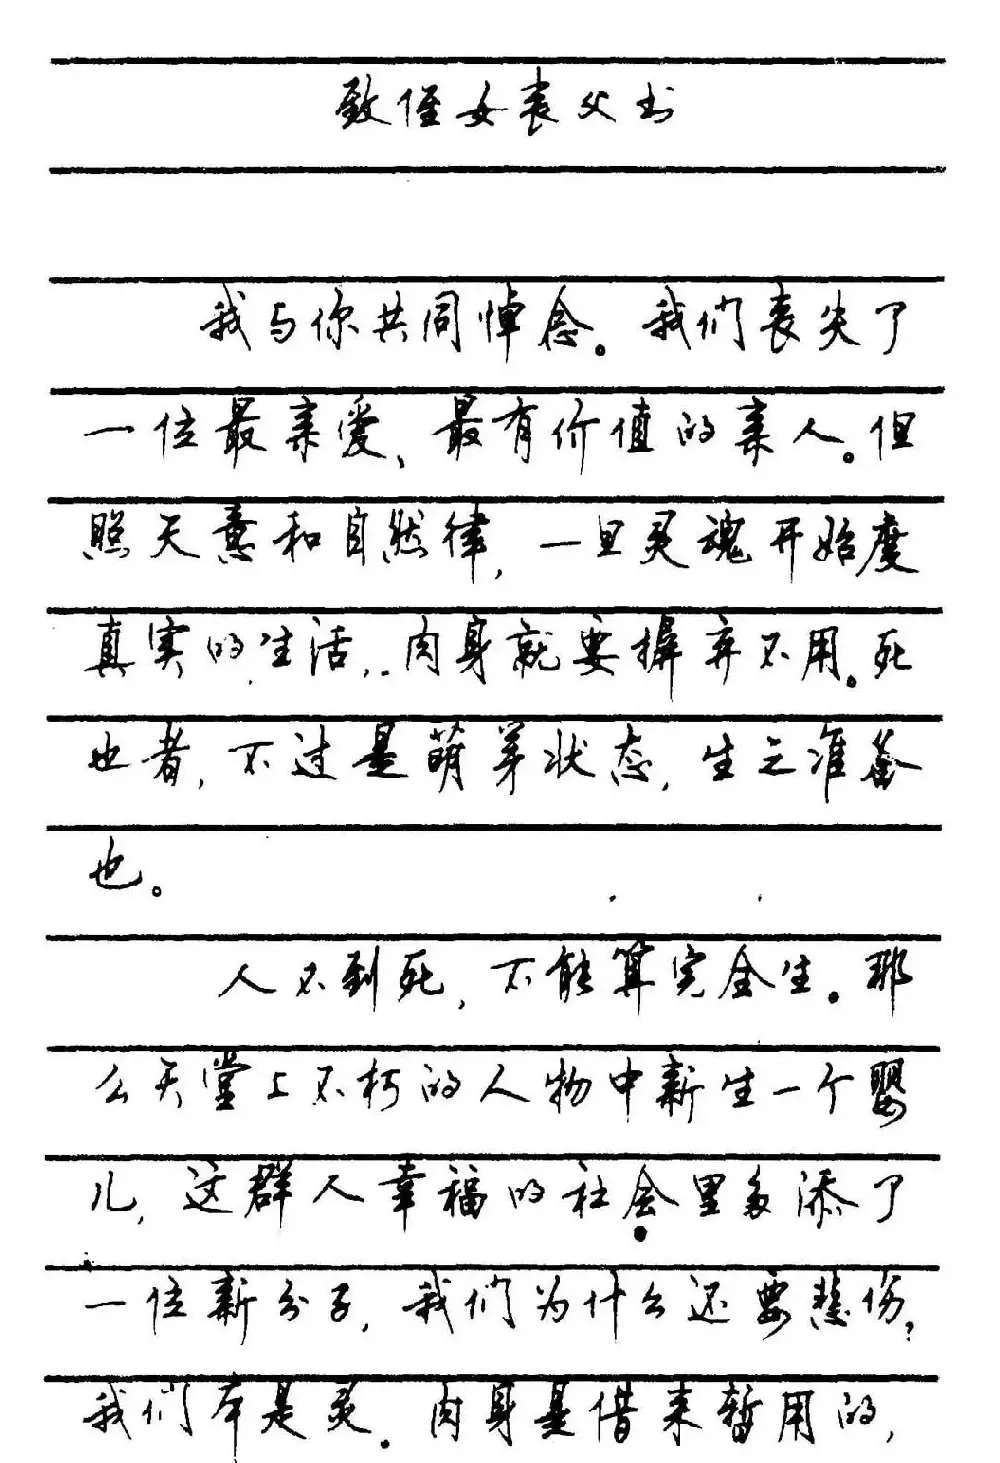 致侄女丧父书
我与你共同悼念。我们丧失了
一位最亲爱、最有价值的亲人。但
照天意和自然律,一旦灵魂开始度
真实的生活,肉身就要摒弃不用。死
也者,不过是萌芽状态,生之准备
也。
人不到死,不能算完全生。那
么天堂上不朽的人物中新生一个婴
儿,这群人幸福的社会里多添了
一位新分子,我们为什么还要悲伤?
我们本是灵。肉身是借来暂用的,